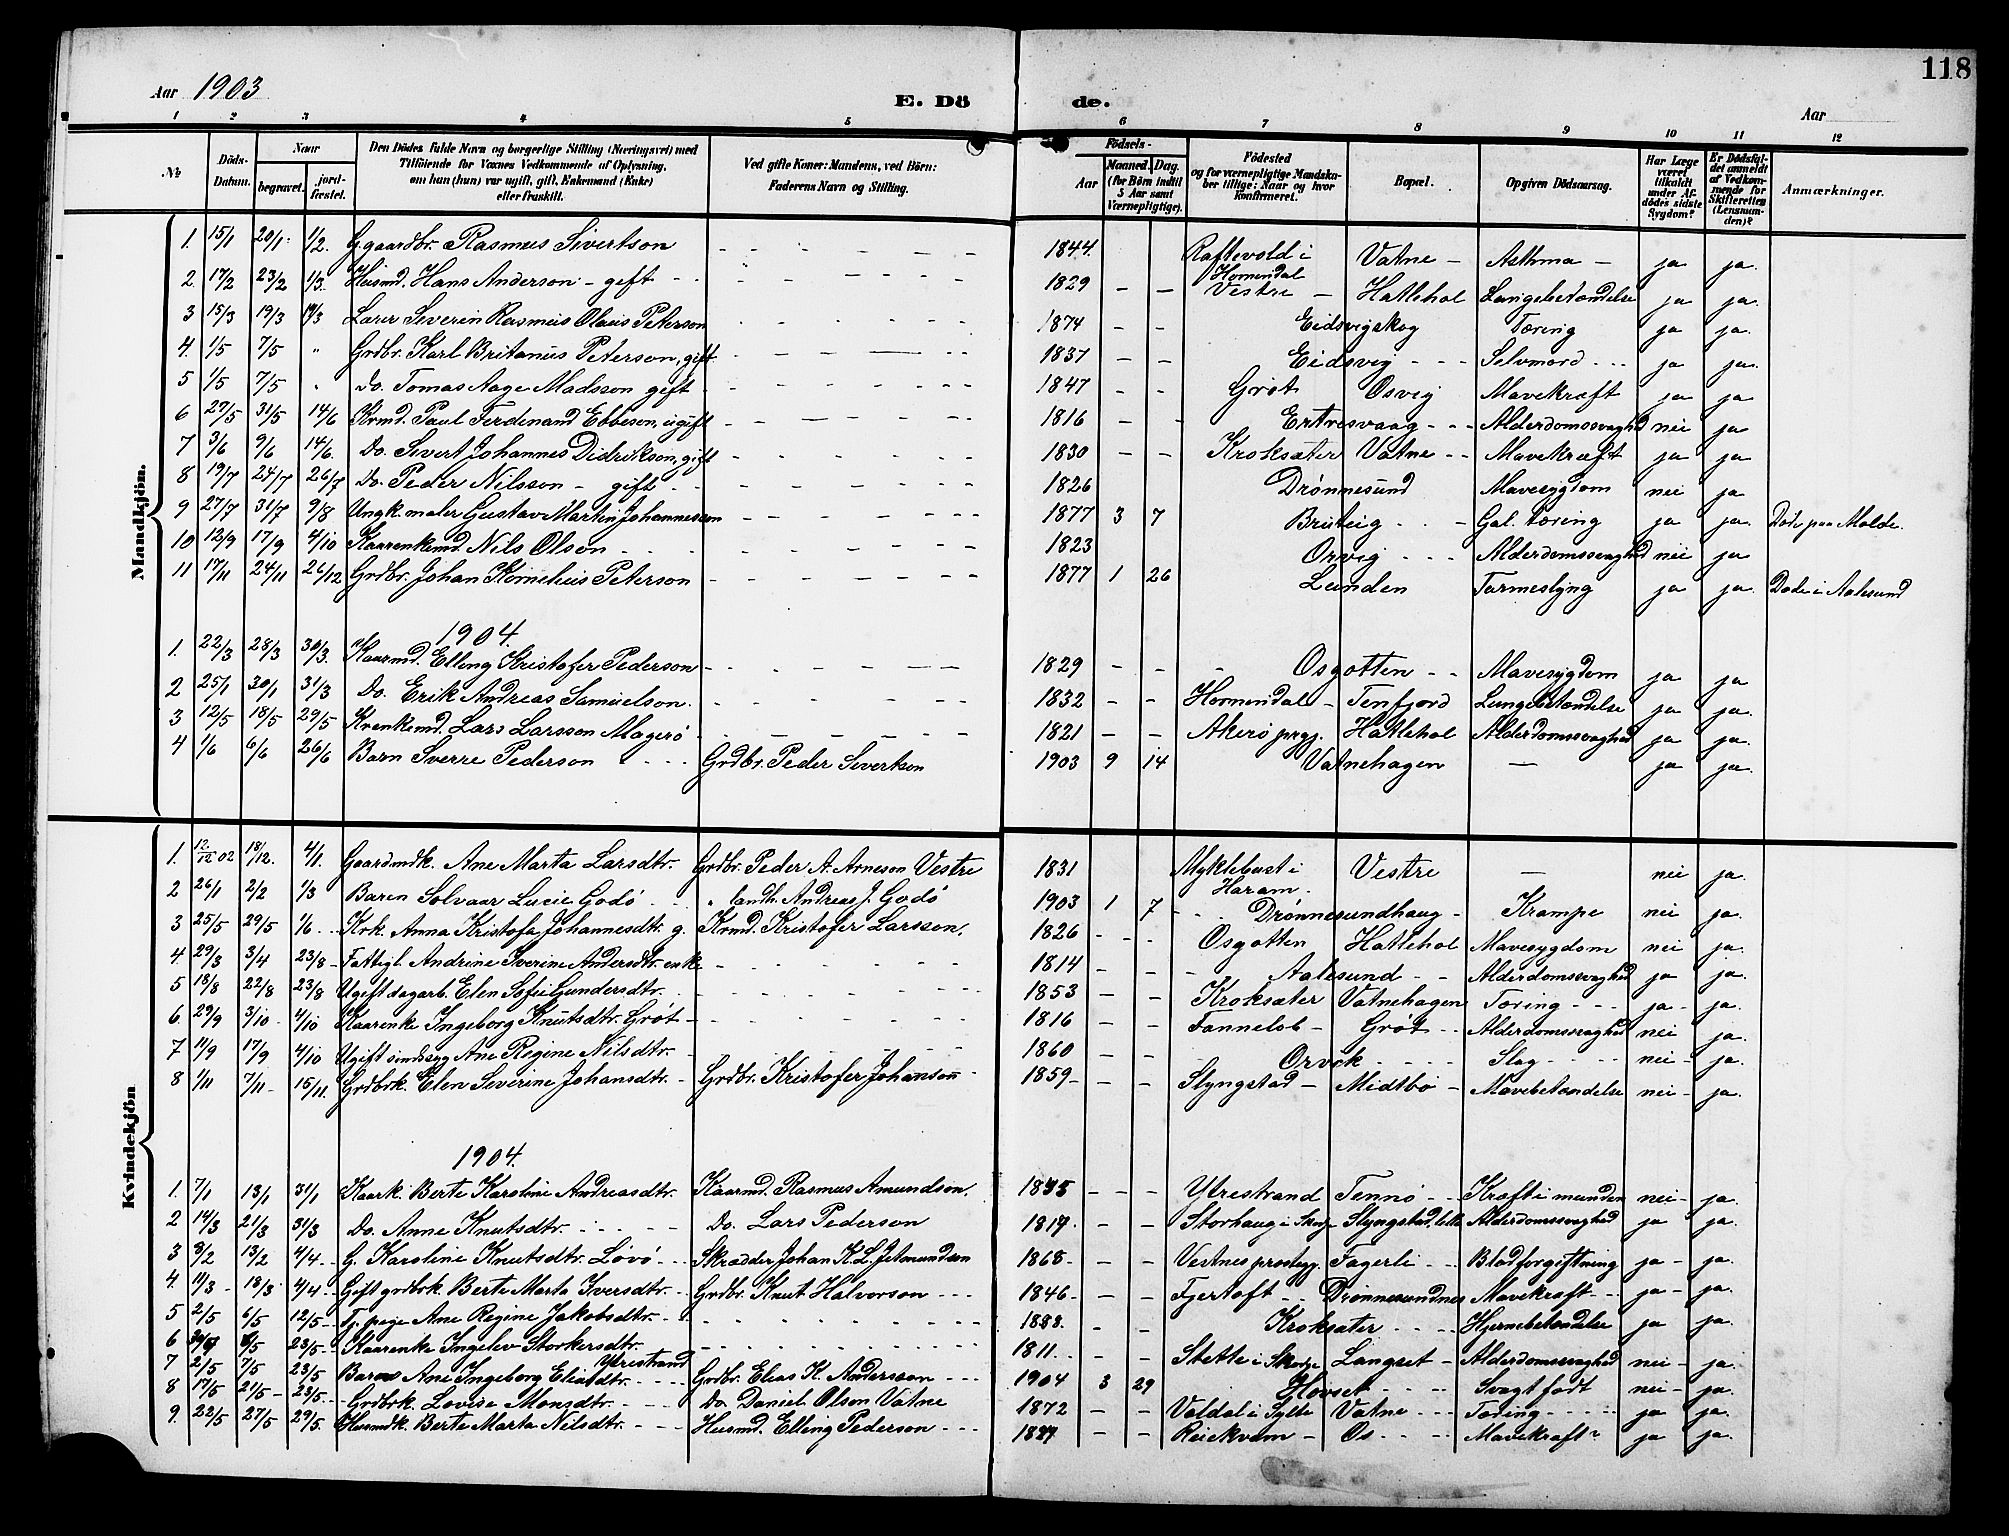 118
Aar 1903
E. Döde.
Aar
1 2 3 4 5 6 7 8 9 10 11 12
№
Döds-Datum.
Naar
begravet.
jordfæstet.
Den Dödes fulde Navn og borgerlige Stilling (Næringsvei) med Tilföiende for Voxnes Vedkommende af Oplysning, om han (hun) var ugift, gift, Enkemand (Enke) eller fraskilt.
Ved gifte Koner: Mandens, ved Börn: Faderens Navn og Stilling.
Födsels-
Aar
Maaned. Dag.
(for Börn indtil 5 Aar samt Værnepligtige).
Födested og for værnepligtige Mandskaber tillige: Naar og hvor Konfirmeret.
Bopæl.
Opgiven Dödsaarsag.
Har Læge været tilkaldt under Afdödes sidste Sygdom?
Er Dödsfaldet anmeldt af Vedkommende for Skifteretten (Lensmanden)?
Anmærkninger.
Mandkjön.
1. 15/1 20/1 1/2 G. gaardbr. Rasmus Sivertson - 1844 Raftevold i Hornendal Vatne - Asthma - ja ja
2. 17/2 23/2 1/3 Husmd. Hans Anderson - gift - 1829 - - Vestre - Hattehol Lungebetændelse ja ja
3 15/3 19/3 19/3 Lærer Severin Rasmus Olaus Peterson - 1874 - - Eidsvigskog Tæring ja ja
4. 1/5 7/5 " Grdbr. Karl Britanus Peterson, gift - 1837 - - Eidsvig - Selvmord - ja ja
5 1/5 7/5 " Do. Tomas Aage Madsson gift - 1847 - - Grøt Osvig Mavekræft ja ja
6 27/5 31/5 14/6 Krmd. Paul Ferdinand Ebbeson, ugift - 1816 - - Ertresvaag - Alderdomssvaghed nei ja
7 3/6 9/6 14/6. Do. Sivert Johannes Didrikson, gift - 1830 - - Kroksæter Vatne - Mavekræft ja ja
8 19/7 24/7 26/7 Do. Peder Nilsson - gift - 1826 Drønnesund Mavesygdom nei ja
9 27/7 31/7 9/8 Ungk. maler Gustav Martin Johannesson - 1877 3 7 Bruteig - Gal. Tæring ja ja Døde paa Molde.
10 12/9 17/9 4/10 Kaarenkemd. Nils Olson - 1823 Orvig - Alderdomssvaghed nei ja
11 17/11 24/11 26/12 Grdbr. Johan Kornelius Peterson - 1877 1 26 Lunden Tarmeslyng ja ja Døde i Aalesund
1904.
1. 22/3 28/3 30/3. Kaarmd. Elling Kristofer Pederson - 1829 - - Osgotten - Mavesygdom ja ja
2 25/1 30/1 31/3 Do. Erik Andreas Samuelson. - 1832 - - Hornendal - Tenfjord Lungebetændelse ja ja
3 12/5 18/5 29/5 Krenkemd. Lars Larsson Magerø - 1821 - - Akerø prgj. Hattehol Alderdomssvaghed ja ja
4 1/6 6/6 26/6 Barn Sverre Pederson - Grdbr. Peder Sivertson 1903 9 14 Vatnehagen - ja ja
Kvindekjön
1. 12/12 02 18/12. 4/1. Gaardmdk. Ane Marta Larsdtr. Grdbr. Peder A. Arneson Vestre 1831 Myklebust i Haram. Vestre - nei ja
2 26/1 2/2 1/3 Baren Solvaar Lucie Godø " landh. Andreas J. Godø 1903 1 7 Drønnesundhaug - Krampe nei ja
3 25/5 29/5 1/6 Krk. Anna Kristofa Johannesdtr. g. Krmd. Kristofer Larsson. 1826 - - Osgotten Hattehol Mavesygdom nei ja
4 29/3 3/4 23/8 Fattigl. Andrine Iverine Andersdtr. enke - 1814 - - Aalesund - Alderdomssvaghed ja ja
5 18/8 22/8 23/8 Ugift dagarb. Elen Sofie Gundersdtr. - 1853 - - Kroksæter Vatnehagen Tæring - ja ja
6. 29/9 3/10 4/10 Kaarenke Ingeborg Knutsdtr. Grøt - 1816 - - Fannelob - Grøt - Alderdomssvaghed nei ja
7 11/9 17/9 4/10 Ugift sindssyg Ane Regine Nilsdtr. - 1860 - - Orvik - Slag - nei ja
8 1/11 7/11 15/11. Grdbrk. Elen Severine Johansdtr. - Grdbr. Kristofer Johanson - 1859 - - Slyngstad - Midtbø - Mavebetændelse nei ja
1904.
1. 7/1 13/1 31/1 Kaark. Berte Karoline Andreasdtr. Kaarmd. Rasmus Amundson. - - Ytrestrand Tennø - Kræft i munden nei ja
2 14/3 21/3 31/3 Do. Anne Knutsdtr. - Do. Lars Pederson - - Storhaug i Skodje Slyngstad Alderdomssvaghed ja ja
3 13/2 4/4 G. Karoline Knutsdtr. Løvø - Skrædder Johan K. L. Jetmundson 1868 - - Vestnes prestegj. Fagerli - Blodforgiftning ja ja
4. 11/3 18/3 4/4 Gift grdbrk. Berte Marta Iversdtr. Grdbr. Knut Halvorson - 1846 - - Fjertoft - Drønnesundnes Mavekræft - ja ja
5 2/5 6/5 12/5 Tj. pige Ane Regine Jakobsdtr. - 1888. - - Kroksæter - Hjernebetændelse ja ja
6 23/5 Kaarenke Ingelev Storkersdtr. Ytrestrand - 1811. - - Stette i Skodje Langset - Alderdomssvaghed nei ja
7 2/5 7/5 23/5 Barn Ane Ingeborg Eliasdtr. - Grdbr. Elias K. Andersson - 1904 3 29 Hovset - Svagt født nei ja
8 17/5 21/5 23/5 Grdbrk. Lovise Monsdtr. - Do Daniel Olson Vatne 1872 - - Valdal i Sylte Vatne - Tæring - ja ja
9. 22/5 27/5 29/5. Husmdk. Berte Marta Nilsdtr. - Husmd. Elling Pederson - - - Reiekvam - Os - Mavekræft ja ja